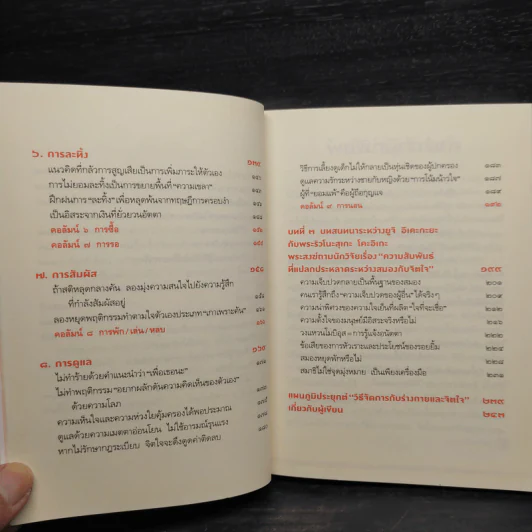 ๖. การละทิ้ง ๑๓๕
แนวคิดที่กลัวการสูญเสียเป็นการเพิ่มภาระให้ตัวเอง
การไม่ยอมละทิ้งเป็นการขยายพื้นที่“ความเขลา”
ฝึกฝนการ “ละทิ้ง” เพื่อหลุดพ้นจากทฤษฎีการครอบงำ
เป็นอิสระจากเงินที่ยั่วยวนอัตตา
คอลัมน์ ๖ การซื้อ
คอลัมน์ ๗ การรอ
๗. การสัมผัส
ถ้าสติหลุดกลางคัน ลองมุ่งความสนใจไปยังความรู้สึก
ที่กำลังสัมผัสอยู่
ลองหยุดพฤติกรรมทำตามใจตัวเองประเภท “เกาเพราะคัน”
คอลัมน์ ๘ การพัก/เล่น/หลบ
๘. การดูแล
ไม่ทำร้ายด้วยคำแนะนำว่า“เพื่อเธอนะ”
ไม่ทำพฤติกรรม “อยากผลักดันความคิดเห็นของตัวเอง”
ด้วยความโลภ
ความเห็นใจและความห่วงใยคุ้มครองได้พอประมาณ
ดูแลด้วยความเมตตาอ่อนโยน ไม่ใช้อารมณ์รุนแรง
หากไม่รักษากฎระเบียบ จิตใจจะดึงดูดคำติดลบ
วิธีการเลี้ยงดูเด็กไม่ให้กลายเป็นหุ่นเชิดของผู้ปกครอง ๑๘๓
ดูแลความรักระหว่างชายกับหญิงด้วย “การโน้มน้าวใจ” ๑๘๕
ผู้ที่ “ยอมแพ้” คือผู้ถือกุญแจ ๑๘๙
คอลัมน์ ๙ การนอน ๑๙๒
บทที่ ๓ บทสนทนาระหว่างยูจิ อิเคะกะยะ
กับพระริวโนะสุเกะ โคะอิเกะ
พระสงฆ์ถามนักวิจัยเรื่อง “ความสัมพันธ์
ที่แปลกประหลาดระหว่างสมองกับจิตใจ” ๑๙๙
ความเจ็บปวดกลายเป็นพื้นฐานของสมอง ๒๐๑
คนเรารู้สึกถึง“ความเจ็บปวดของผู้อื่น”ได้จริงๆ
ความน่าพิศวงของความใจเย็นที่ผลิต“ใจที่จะเชื่อ”
ความตั้งใจของมนุษย์มีอิสระจริงหรือไม่
วงแหวนโมบิอุส = การรู้แจ้งอนัตตา
ข้อเสียของการหัวเราะและประโยชน์ของรอยยิ้ม ๒๒๔
สมองหยุดพักหรือไม่ ๒๒๘
สมาธิไม่ใช่จุดมุ่งหมาย เป็นเพียงเครื่องมือ ๒๓๑
แผนภูมิประยุกต์ “วิธีจัดการกับร่างกายและจิตใจ” ๒๓๕
เกี่ยวกับผู้เขียน ๒๔๓